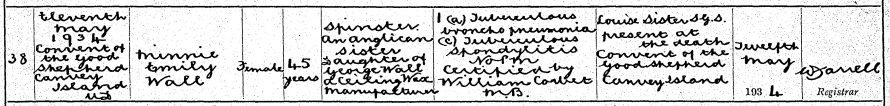 38
Eleventh
May
1934
Convent of
the Good
Shepherd
Canvey
Island
U.D.
Minnie
Emily
Wall
Female
45
years
Spinster
an Anglican
Sister
Daughter of
George Wall
a Ceiling Wax
Manufacturer
1 (a) Tuberculous
broncho pneumonia
(c) Tuberculous
Spondylitis
No P.M
Certified by
William Corbet
M.B.
Louise Sister S.G.S.
present at
the death
Convent of the
Good Shepherd
Canvey Island
Twelfth
May
1934
Registrar